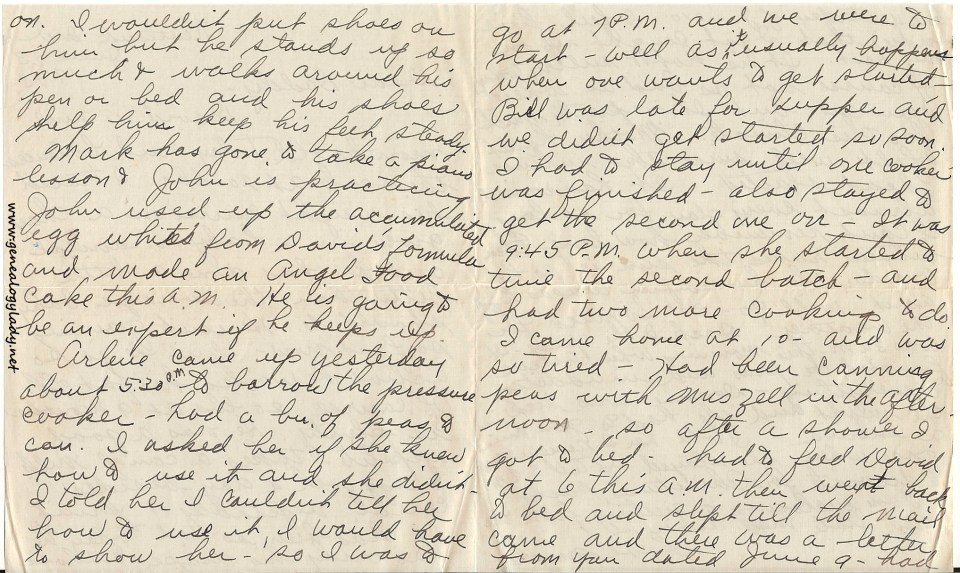 on. I wouldn't put shoes on
him but he stands up so
much & walks around his
pen or bed and his shoes
help him keep his feet steady.
Mark has gone to take a piano
lesson & John is practicing
John used up the accumulated
egg whites from David's formula
and made an Angel Food
cake this a.m. He is going to
be an expert if he keeps up.
Arlene came up yesterday
about 5:30 P.M. to borrow the pressure
cooker - had a bu. of peas to
can. I asked her if she knew
how to use it and she didn't -
I told her I couldn't tell her
how to use it, I would have
to show her - so I was to
go at 7 P.M. and we were to
start - well as it usually happens
when one wants to get started -
Bill was late for supper and
we didn't get started so soon.
I had to stay until one cooker
was finished - also stayed to
get the second one on - It was
9:45 P.M. when she started to
time the second batch - and
had two more cooking to do.
I came home at 10 - and was
so tired - Had been canning
peas with Muszell in the after-
noon - so after a shower I
got to bed - had to feed David
at 6 this a.m. then went back
to bed and slept till the mail
came and there was a letter
from you dated June 9 - had
www.genealogylady.net